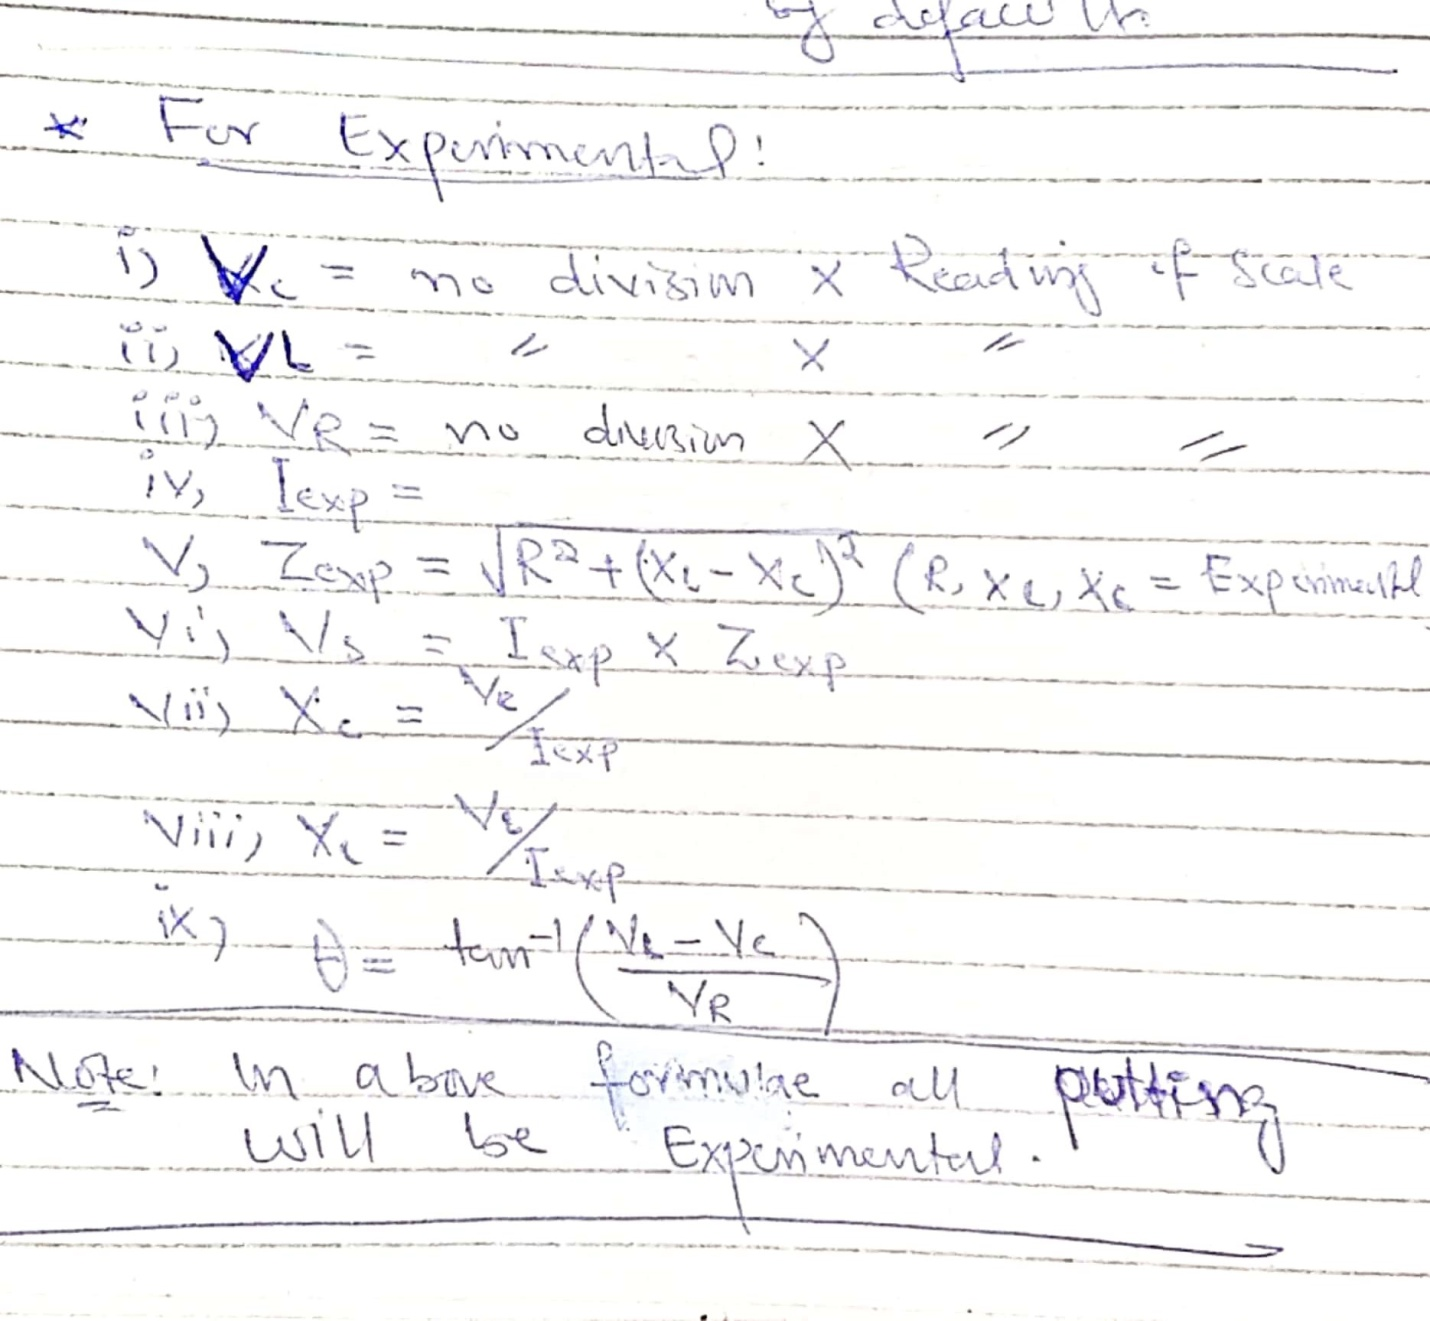 by default
* For Experimental:
i) Vc = no division x Reading of Scale
ii) VL = " x "
iii) VR = no division X " "
iv) Iexp =
v) Zexp = √R²+(XL-Xc)² (R, XL, Xc = Experimental
vi) Vs = Iexp x Zexp
vii) Xc = Vc/Iexp
viii) XL = VL/Iexp
ix) θ = tan⁻¹(VL-Vc/VR)
Note: In above formulae all putting
will be Experimental.